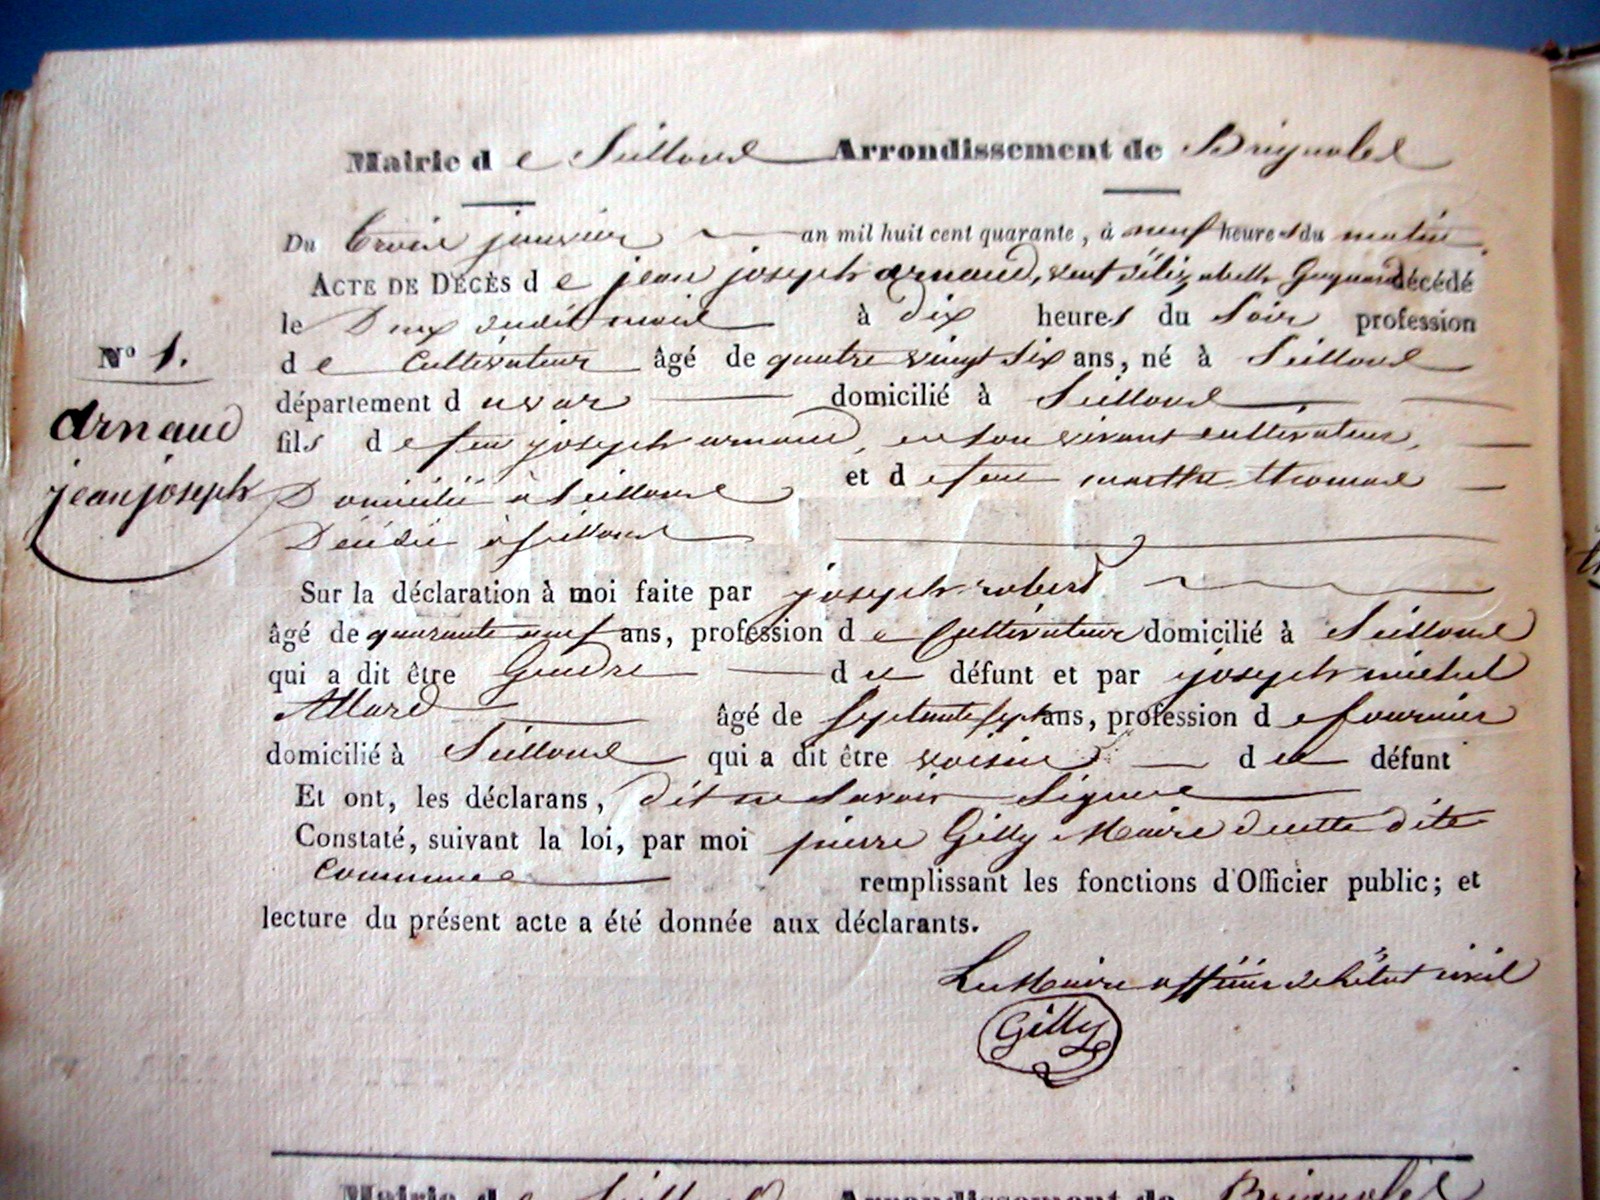 Mairie de Seillons Arrondissement de Brignoles
Du trois janvier an mil huit cent quarante, à neuf heures du matin
ACTE DE DÉCÈS de jean joseph arnaud, veuf d'élizabeth décédé
le Deux dudit mois à dix heures du Soir profession
N° 1. de Cultivateur âgé de quatre vingt Six ans, né à Seillons
département du var domicilié à Seillons
arnaud fils de feu joseph arnaud, en son vivant cultivateur,
jean joseph Domicilié à Seillons et de feue marthe thomas
Décédée à Seillons
Sur la déclaration à moi faite par joseph robert
âgé de quarante neuf ans, profession de Cultivateur domicilié à Seillons
qui a dit être Gendre du défunt et par joseph michel
Allard âgé de septante sept ans, profession de fournier
domicilié à Seillons qui a dit être voisin du défunt
Et ont, les déclarans, dit ne Savoir Signer
Constaté, suivant la loi, par moi pierre Gilly Maire de cette dite
Commune remplissant les fonctions d'Officier public; et
lecture du présent acte a été donnée aux déclarants.
Le Maire officier de l'état civil
Gilly
Mairie de Seillons Arrondissement de Brignoles